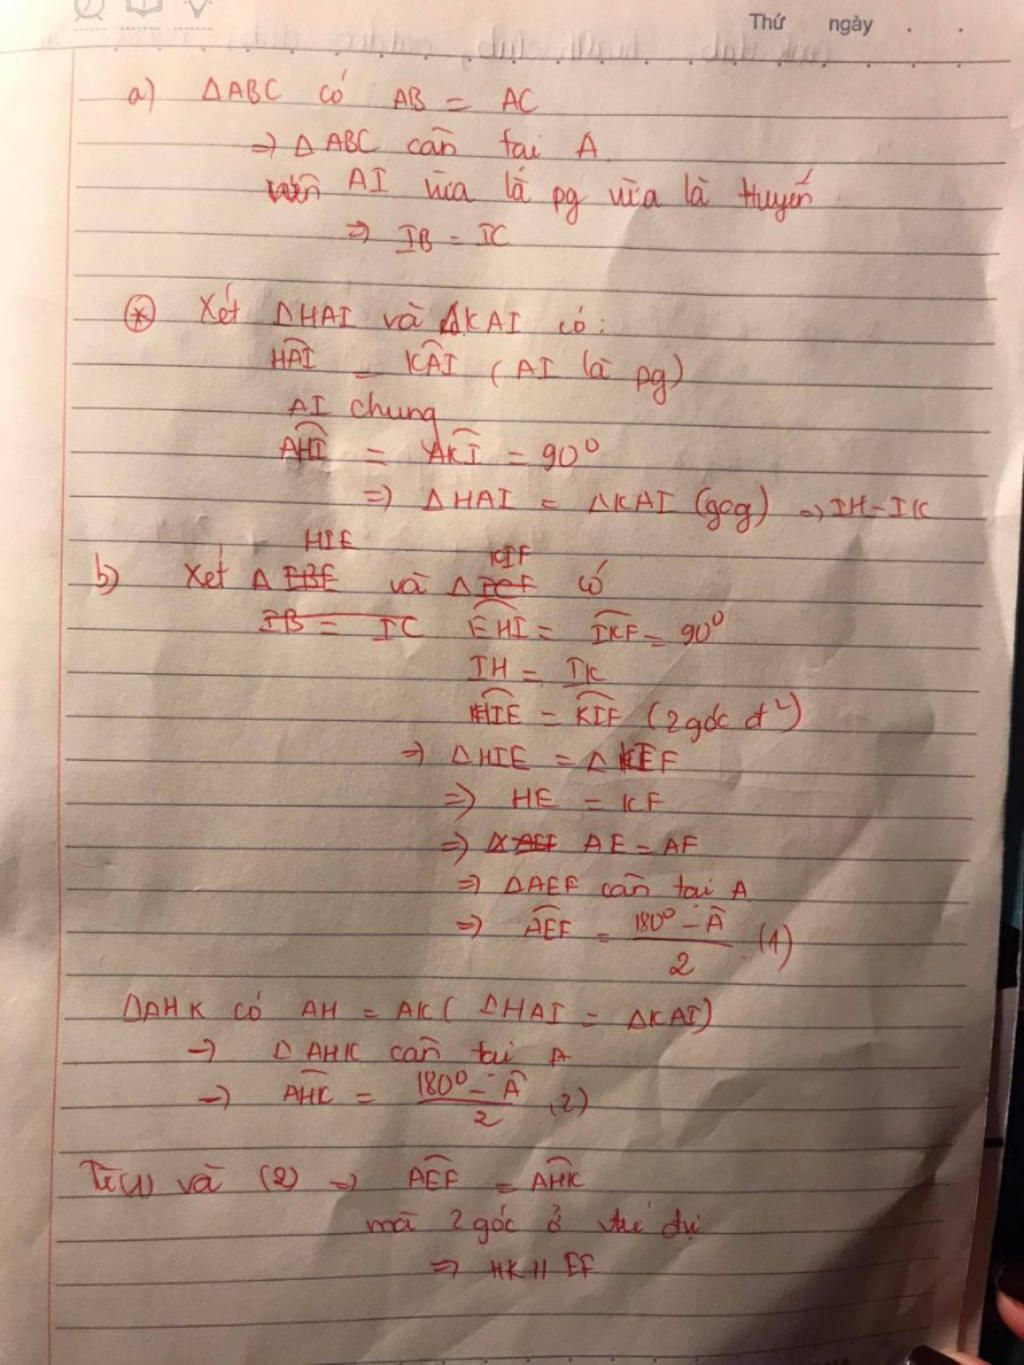 Thứ ngày . .
a) ΔABC có AB = AC
=> ΔABC cân tại A.
AI vừa là pg vừa là tuyến
=> IB = IC
* Xét ΔHAI và ΔKAI có:
HAI = KAI (AI là pg)
AI chung
AHI = AKI = 90°
=> ΔHAI = ΔKAI (gcg) => IH = IK
HIE KIF
b) Xét Δ EBE và Δ FCF có
IB = IC EHI = IKF = 90°
IH = IK
HIE = KIF (2 góc đ²)
=> ΔHIE = ΔKEF
=> HE = KF
=> Δ AEF AE = AF
=> ΔAEF cân tại A
=> AEF = (180° - Â)/2 (1)
ΔAHK có AH = AK (ΔHAI = ΔKAI)
-> ΔAHK cân tại A
-> AHK = (180° - Â)/2 (2)
Từ (1) và (2) => AEF = AHK
mà 2 góc ở đv
=> HK // EF